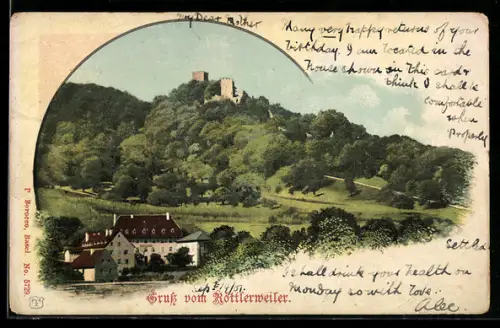 My Dear Mother
Many very happy returns of your
birthday. I am located in the
house shown on this card &
think I shall be
comfortable
when
properly
Settled
I shall drink your health on
Monday so with love.
Alec.
Gruß vom Röttlerweiler.
P. Bernoco, Basel No. 5729